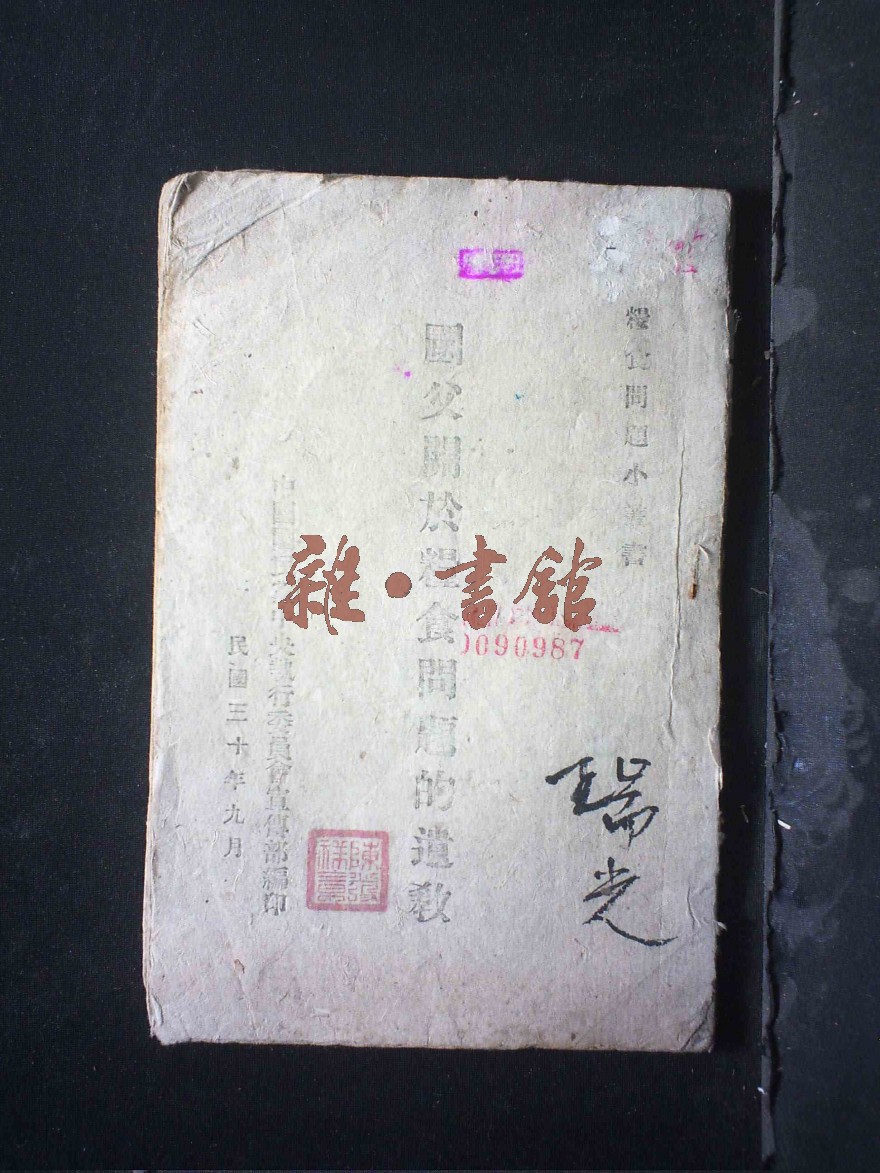 糧食問題小叢書
國父關於糧食問題的遺教
中國國民黨中央執行委員會宣傳部編印
民國三十年九月
瑞光
0090987
雜·書館